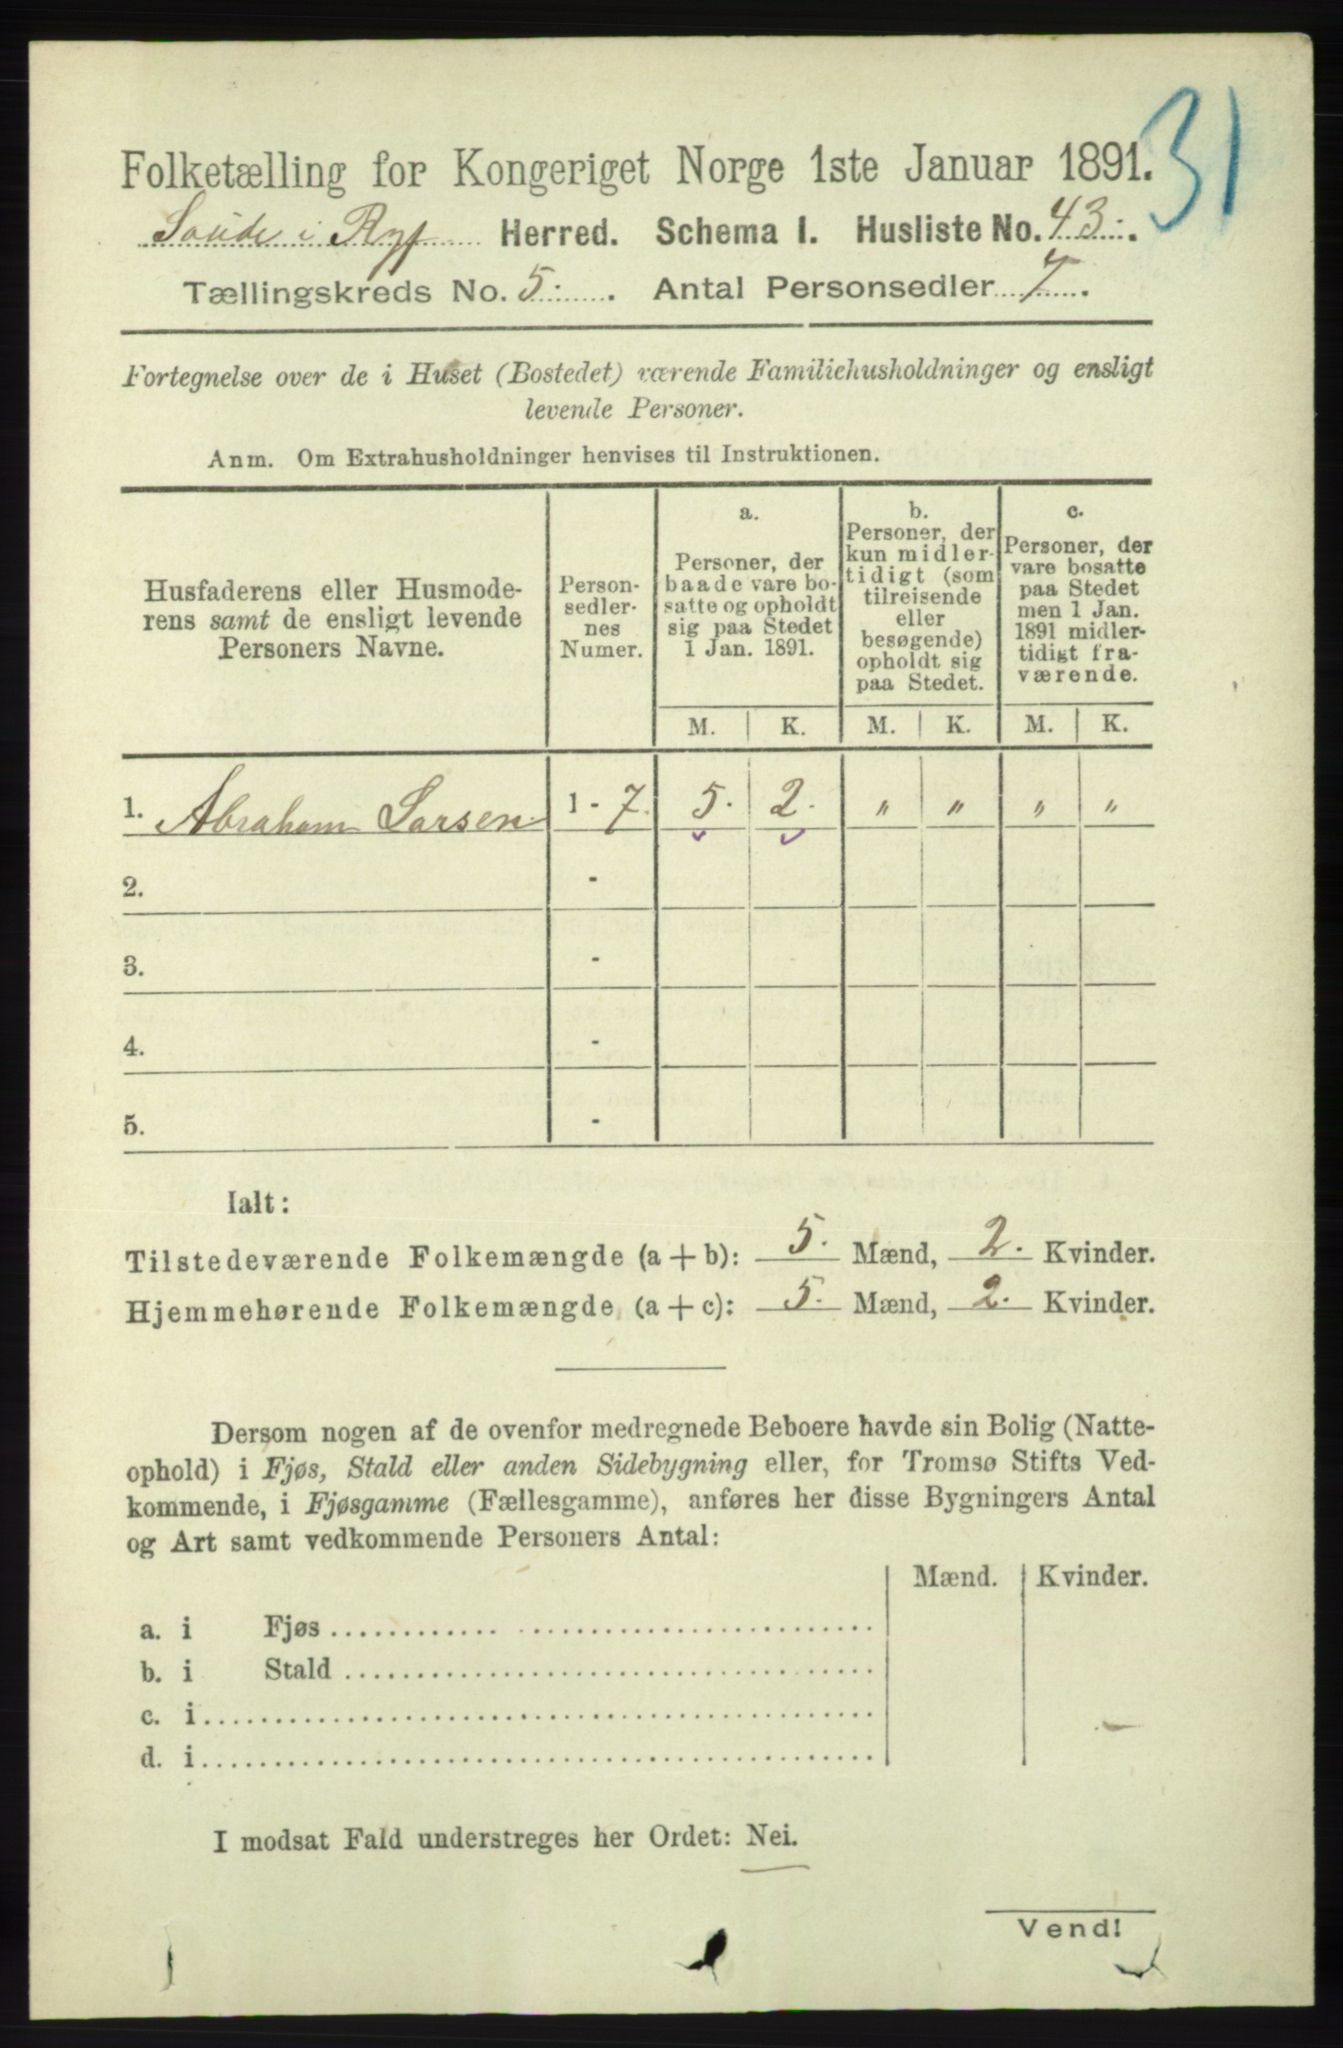 31
Folketælling for Kongeriget Norge 1ste Januar 1891.
Saude i Ryf Herred. Schema I. Husliste No. 43.
Tællingskreds No. 5. Antal Personsedler 7.
Fortegnelse over de i Huset (Bostedet) værende Familiehusholdninger og ensligt
levende Personer.
Anm. Om Extrahusholdninger henvises til Instruktionen.
Husfaderens eller Husmode-
rens samt de ensligt levende
Personers Navne.
Person-
sedler-
nes
Numer.
a.
Personer, der
baade vare bo-
satte og opholdt
sig paa Stedet
1 Jan. 1891.
b.
Personer, der
kun midler-
tidigt (som
tilreisende
eller
besøgende)
opholdt sig
paa Stedet.
c.
Personer, der
vare bosatte
paa Stedet
men 1 Jan.
1891 midler-
tidigt fra-
værende.
M. K. M. K. M. K.
1. Abraham Larsen 1 - 7. 5. 2. " " " "
2. -
3. -
4. -
5. -
Ialt:
Tilstedeværende Folkemængde (a + b): 5. Mænd, 2. Kvinder.
Hjemmehørende Folkemængde (a + c): 5. Mænd, 2. Kvinder.
Dersom nogen af de ovenfor medregnede Beboere havde sin Bolig (Natte-
ophold) i Fjøs, Stald eller anden Sidebygning eller, for Tromsø Stifts Ved-
kommende, i Fjøsgamme (Fællesgamme), anføres her disse Bygningers Antal
og Art samt vedkommende Personers Antal:
Mænd. Kvinder.
a. i Fjøs
b. i Stald
c. i
d. i
I modsat Fald understreges her Ordet: Nei.
Vend!